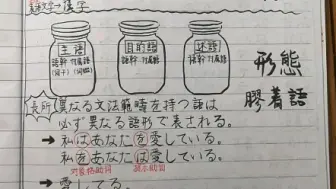 漢字
主語
語幹 付属語
目的語
語幹 付属語
述語
語幹 付属語
形態
膠着語
長所
異なる文法範疇を持つ語は
必ず異なる語形で表される。
→ 私はあなたを愛している。
私をあなたは愛している。
対象格助詞
提示助詞
→ 愛してる。